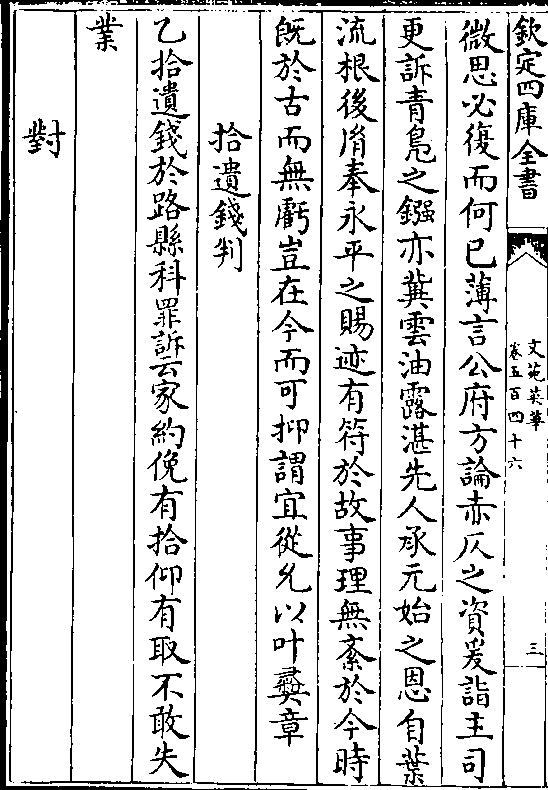 欽定四庫全書
文苑英華
卷五百四十六
三
微思必復而何已薄言公府方論赤仄之資爰詣主司
更訴青鳧之鏹亦冀雲油露湛先人承元始之恩自葉
流根後胤奉永平之賜迹有符於故事理無紊於今時
既於古而無虧豈在今而可抑謂宜從允以叶彛章
拾遺錢判
乙拾遺錢於路縣科罪訴云家約俛有拾仰有取不敢失
業
對